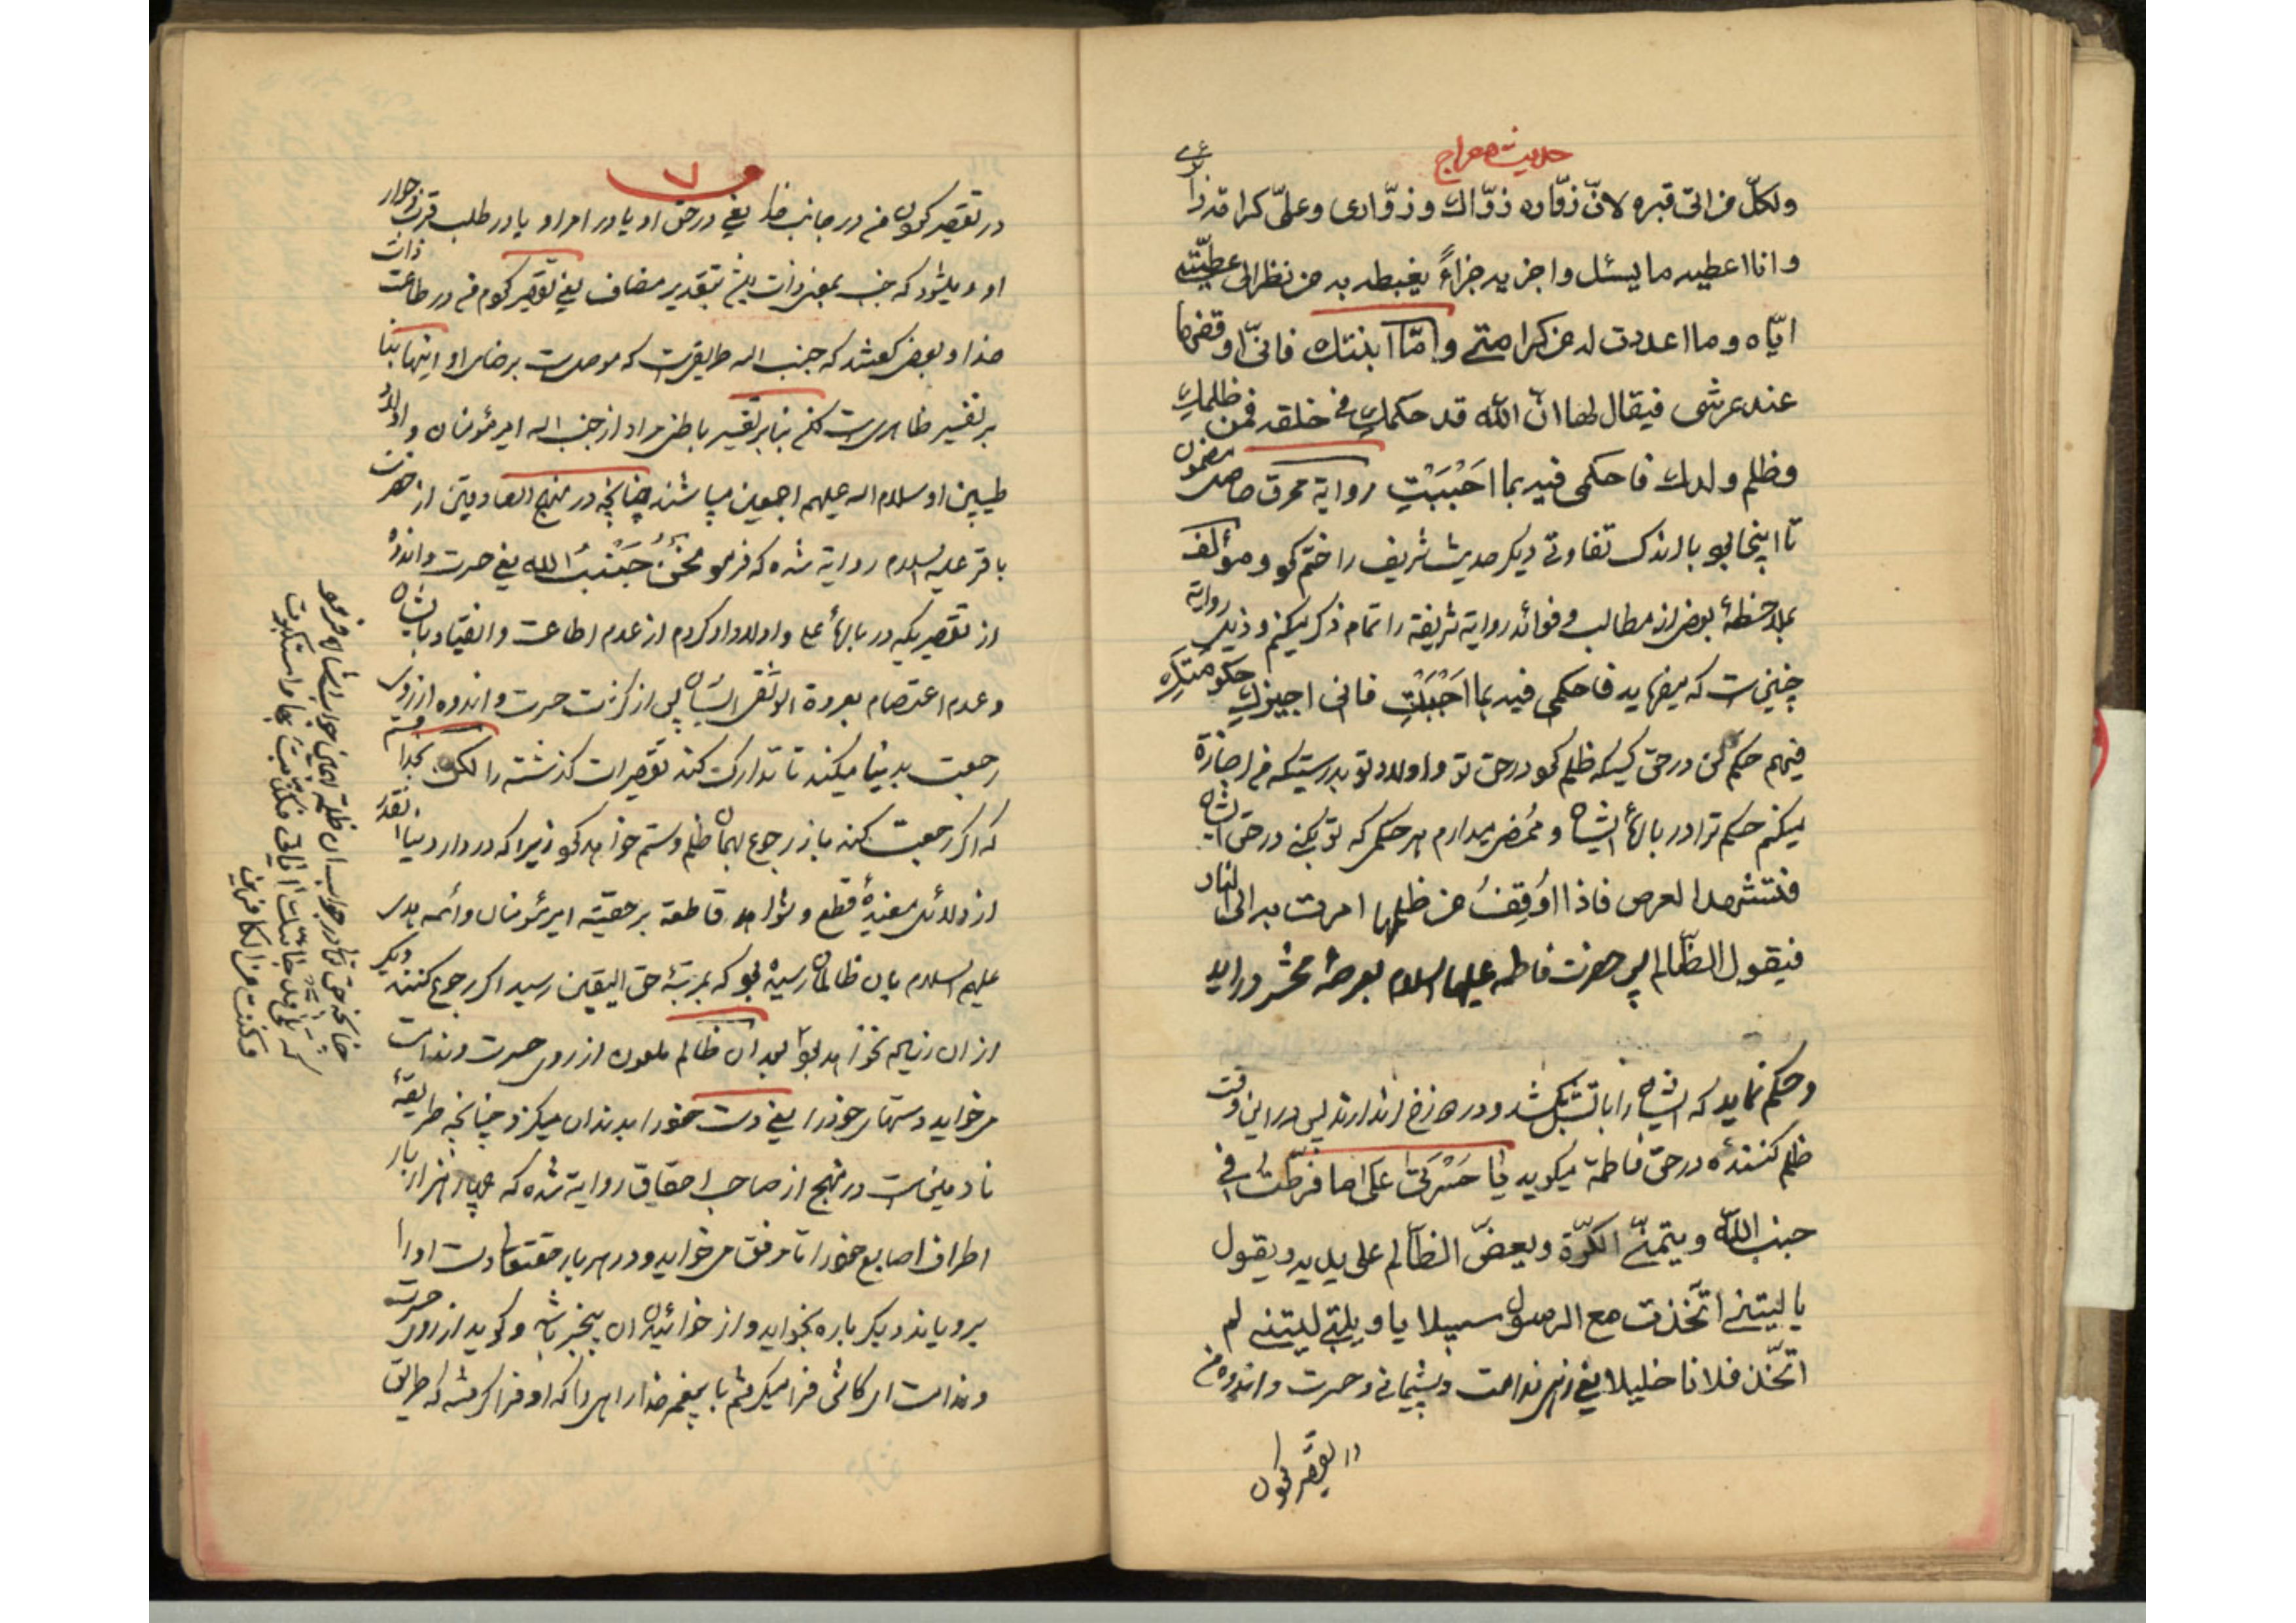 حدیث معراج
ولکلّ من اتی قبره لانّ زوّاره زوّاک و زوّاری و علیّ کرامة زا
و انا اعطیه ما یسئل و اجزیه جزاءً یغبطه به من نظر الی عطیّتی
ایّاه و ما اعددت له من کرامتی و امّا ابنتک فانّی اوقفها
عند عرشی فیقال لها انّ الله قد حکمک فی خلقه فمن ظلمک
و ظلم ولدک فاحکمی فیه بما احببت روایة محرق مضمون
تا اینجا بود با اندک تفاوتی دیگر حدیث شریف را ختم کرد و مؤلف
بملاحظهٔ بعض از مطالب و فوائد روایة شریفة را تمام ذکر میکنم و ذیل روایة
چنین است که میفرماید فاحکمی فیه بما احببت فانی اجیز حکومتک
فیهم حکم کن در حق کسیکه ظلم کرد در حق تو و اولاد تو بدرستیکه من اجازة
میکنم حکم ترا در بارهٔ ایشان و ممضی میدارم هر حکمی که تو بکنی در حق ایشان
فتشهد العرص فاذا اُوقِفُ من ظلمها امرت به الی النار
فیقول الظّالم پس حضرت فاطمه علیها السلام بعرصهٔ محشر در اید
و حکم نماید که ایشان را باتش بکشند و در دوزخ اندازند پس در این وقت
ظلم کنندهٔ در حق فاطمة میگوید یا حَسْرَتیٰ علی ما فرّطتُ فی
جنب الله و یتمنّی الکرّة و یعضّ الظّالم علی یدیه و یقول
یا لیتنی اتّخذت مع الرسول سبیلا یا ویلتی لیتنی لم
اتّخذ فلانا خلیلا یعنی زهی ندامت و پشیمانی و حسرت و اندوه من
در تقصیر کردن
۷
در تقصیر کردن من در جانب خدا یعنی در حق او یا در امر او یا در طلب قرب و جوار
او و میشود که جنب بمعنی ذات بتقدیر مضاف یعنی تقصیر کردم من در طاعت ذات
خدا و بعضی گفتند که جنب اله طریقیست که موصل است برضای او اینها بنا
بر تفسیر ظاهری است لکن بنا بر تفسیر باطنی مراد از جنب اله امیر مؤمنان و اولاد
طیبین او سلام اله علیهم اجمعین میباشند چنانچه در منهج الصادقین از حضرت
باقر علیه السلام روایة شده که فرمود نحنُ جَنْبُ الله یعنی حسرت و اندوه
از تقصیریکه در بارهٔ علی و اولاد او کردم از عدم اطاعت و انقیاد بایشان
و عدم اعتصام بعروة الوثقی ایشان پس از کثرت حسرت و اندوه ارزوی
رجعت بدنیا میکند تا تدارک کند تقصیرات گذشته را لکن بخدا قسم
که اگر رجعت کند باز رجوع بهمان ظلم و ستم خواهد کرد زیرا که در دار دنیا انقدر
از دلائل مفیدهٔ قطع و شواهد قاطعة بر حقیّة امیر مؤمنان و ائمه هدی
علیهم السلام بان ظالمان رسیده بود که بمرتبهٔ حق الیقین رسید اگر رجوع کنند دیگر
از ان زیاده نخواهد بود بعد ان ظالم ملعون از روی حسرت و ندامت
میخواید دستهای خود را یعنی دست خود را بدندان میگزد چنانچه طریقهٔ
نادمین است در منهج از صاحب احقاق روایة شده که چهار هزار بار
اطراف اصابع خود را تا مرفق میخواید و در هر بار حقتعالی دست او را
برویاند دیگر باره بخواید و از خوائیدن ان بیخبر باشد و گوید از روی حسرت
و ندامت ای کاش فرا میگرفتم با پیغمبر خدا راهی را که او فرا گرفته که طریق
چنانچه حق تعالی در جواب ان ظلمة همین جواب ایشان فرمود
که بلی قد جاءتک ایاتی فکذّبت بها و استکبرت
و کنت من الکافرین